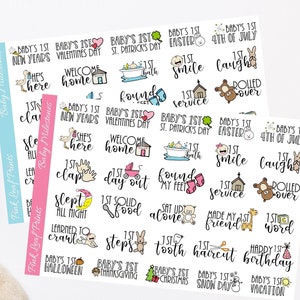 BABY'S 1ST NEW YEARS
BABY'S 1ST VALENTINES DAY
BABY'S 1ST ST. PATRICK'S DAY
BABY'S 1ST EASTER
BABY'S 1ST 4TH OF JULY
SHE'S here
WELCOME home
1st bath
1st smile
1st laugh
found
1st service
ROLLED over
Baby Milestones
Pink Leaf Prints
BABY'S 1ST NEW YEARS
BABY'S 1ST VALENTINES DAY
BABY'S 1ST ST. PATRICK'S DAY
BABY'S 1ST EASTER
BABY'S 1ST 4TH OF JULY
HE'S here
WELCOME home
1st bath
1st smile
1st laugh
1st clap
1st day out
found MY FEET
1st service
ROLLED over
slept ALL NIGHT
1st SOLID food
SAT UP alone
MADE MY friend
1st word
LEARNED TO crawl
1st steps
1st tooth
1st haircut
HAPPY 1st BIRTHDAY
BABY'S 1ST HALLOWEEN
BABY'S 1ST THANKSGIVING
BABY'S 1ST CHRISTMAS
BABY'S 1ST SNOW DAY
BABY'S 1ST VACATION
Baby Milestones
Pink Leaf Prints